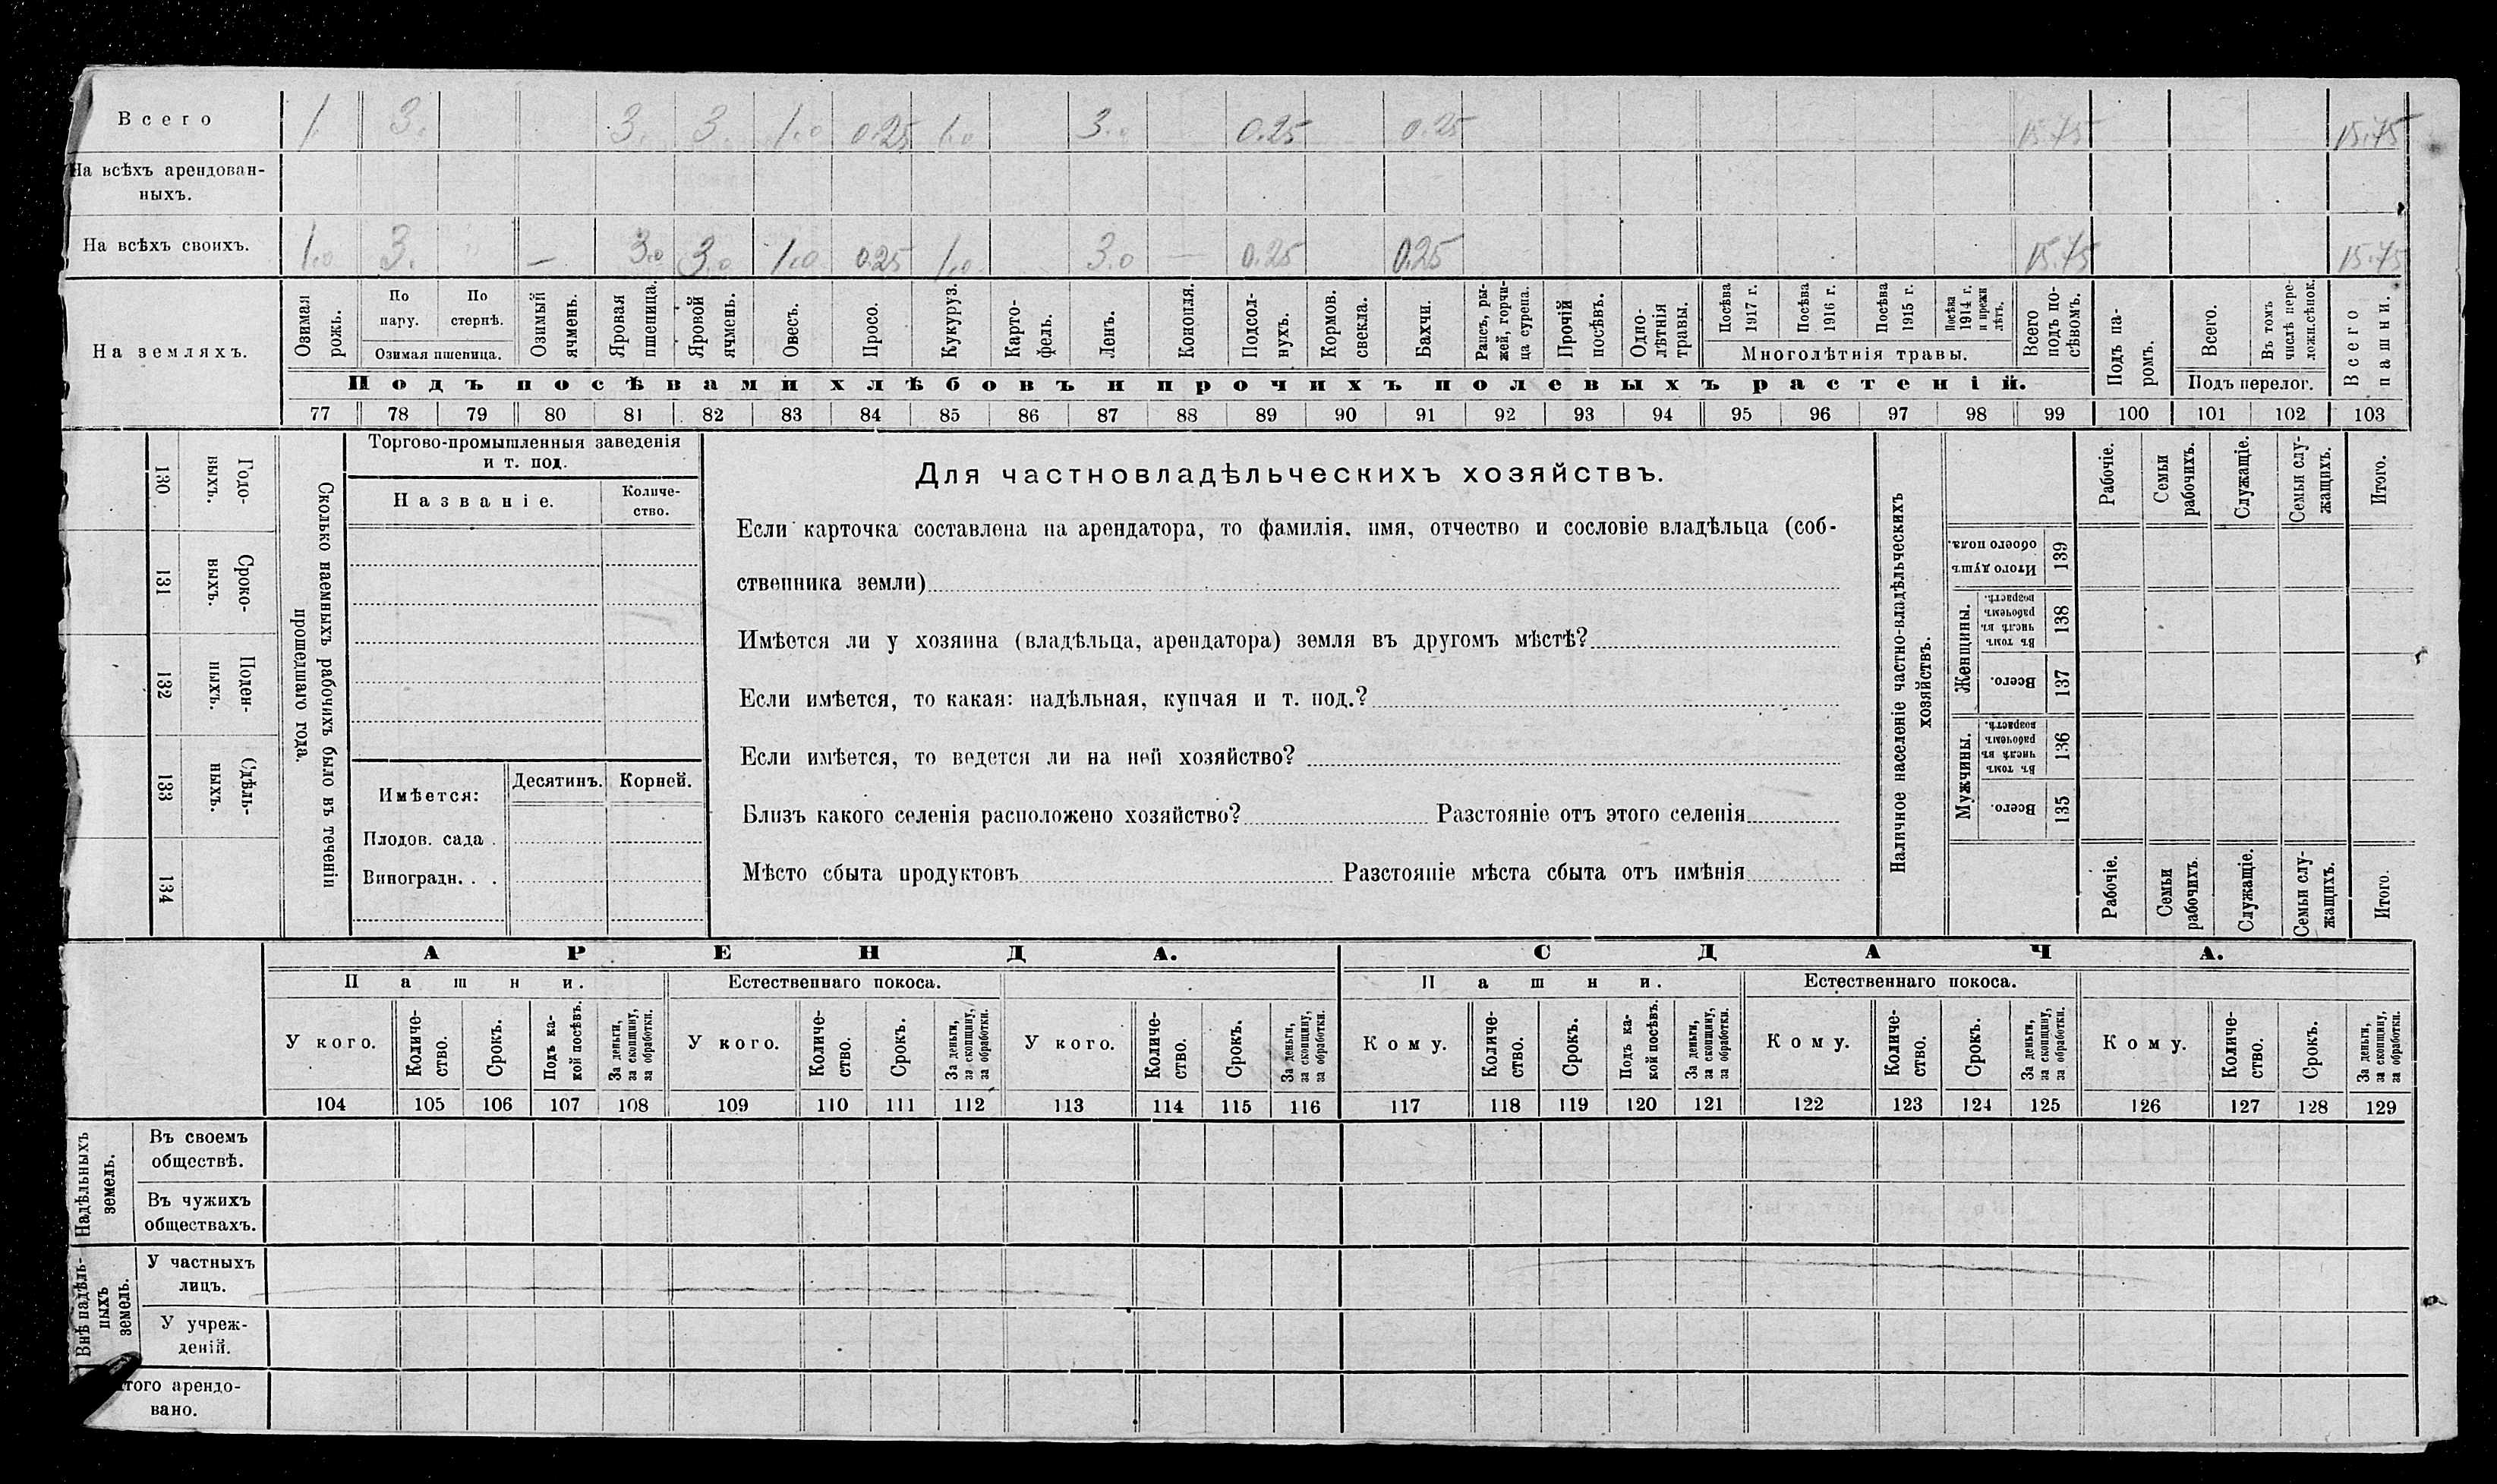 Всего 1. 3. 3. 3. 1.0 0.25 1.0 3.0 0.25 0.25 15.75 15.75
На всѣхъ арендован-
ныхъ.
На всѣхъ своихъ. 1.0 3. — 3.0 3.0 1.0 0.25 1.0 3.0 — 0.25 0.25 15.75 15.75
На земляхъ.
Озимая рожь.
По пару.
По стернѣ.
Озимая пшеница.
Озимый ячмень.
Яровая пшеница.
Яровой ячмень.
Овесъ.
Просо.
Кукуруз.
Карто-
фель.
Ленъ.
Конопля.
Подсол-
нухъ.
Кормов.
свекла.
Бахчи.
Рапсъ, ры-
жей, горчи-
ца сурепа.
Прочій
посѣвъ.
Одно-
лѣтнія
травы.
Посѣва
1917 г.
Посѣва
1916 г.
Посѣва
1915 г.
Посѣва
1914 г.
и прежн
лѣтъ.
Многолѣтнія травы.
Всего
подъ по-
сѣвомъ.
Подъ па-
ромъ.
Всего.
Въ томъ
числѣ пере-
ложн.сѣнок.
Подъ перелог.
Всего
пашни.
Подъ посѣвами хлѣбовъ и прочихъ полевыхъ растеній.
77 78 79 80 81 82 83 84 85 86 87 88 89 90 91 92 93 94 95 96 97 98 99 100 101 102 103
130 Годо-
выхъ.
131 Сроко-
выхъ.
132 Поден-
ныхъ.
133 Сдѣль-
ныхъ.
134
Сколько наемныхъ рабочихъ было въ теченіи
прошедшаго года.
Торгово-промышленныя заведенія
и т. под.
Названіе.
Количе-
ство.
Имѣется:
Десятинъ. Корней.
Плодов. сада .
Виноградн. . .
Для частновладѣльческихъ хозяйствъ.
Если карточка составлена на арендатора, то фамилія, имя, отчество и сословіе владѣльца (соб-
ственника земли)
Имѣется ли у хозяина (владѣльца, арендатора) земля въ другомъ мѣстѣ?
Если имѣется, то какая: надѣльная, купчая и т. под.?
Если имѣется, то ведется ли на ней хозяйство?
Близъ какого селенія расположено хозяйство? Разстояніе отъ этого селенія
Мѣсто сбыта продуктовъ Разстояніе мѣста сбыта отъ имѣнія
Наличное населеніе частно-владѣльческихъ
хозяйствъ.
Рабочіе.
Семьи
рабочихъ.
Служащіе.
Семьи слу-
жащихъ.
Итого.
Итого душъ
обоего пола.
139
Женщины.
Въ томъ
числѣ въ
рабочемъ
возрастѣ.
138
Всего.
137
Мужчины.
Въ томъ
числѣ въ
рабочемъ
возрастѣ.
136
Всего.
135
Рабочіе.
Семьи
рабочихъ.
Служащіе.
Семьи слу-
жащихъ.
Итого.
АРЕНДА. СДАЧА.
Пашни. Естественнаго покоса. Пашни. Естественнаго покоса.
У кого.
Количе-
ство.
Срокъ.
Подъ ка-
кой посѣвъ.
За деньги,
за скопщину,
за обработки.
У кого.
Количе-
ство.
Срокъ.
За деньги,
за скопщину,
за обработки.
У кого.
Количе-
ство.
Срокъ.
За деньги,
за скопщину,
за обработки.
Кому.
Количе-
ство.
Срокъ.
Подъ ка-
кой посѣвъ.
За деньги,
за скопщину,
за обработки.
Кому.
Количе-
ство.
Срокъ.
За деньги,
за скопщину,
за обработки.
Кому.
Количе-
ство.
Срокъ.
За деньги,
за скопщину,
за обработки.
104 105 106 107 108 109 110 111 112 113 114 115 116 117 118 119 120 121 122 123 124 125 126 127 128 129
Надѣльныхъ
земель.
Въ своемъ
обществѣ.
Въ чужихъ
обществахъ.
Внѣ надѣль-
ныхъ
земель.
У частныхъ
лицъ.
У учреж-
деній.
Итого арендо-
вано.